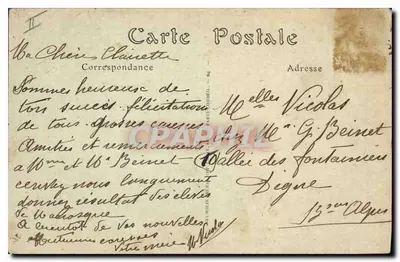 II
Carte Postale
Correspondance
Adresse
Ma Chère Clairette
Sommes heureuse de
ton succès félicitations
de tous grosses caresses
Amitiés et remerciements
a Mme et Mr Beinet
écrivez nous longuement
donnez résultat des élèves
de Manosque
A bientôt de vos nouvelles
Affectueuses caresses
Votre mère M Nicolas
Melles Nicolas
chez Mr G. Beinet
19 allée des fontainiers
Digne
Bses Alpes
CPARAMA